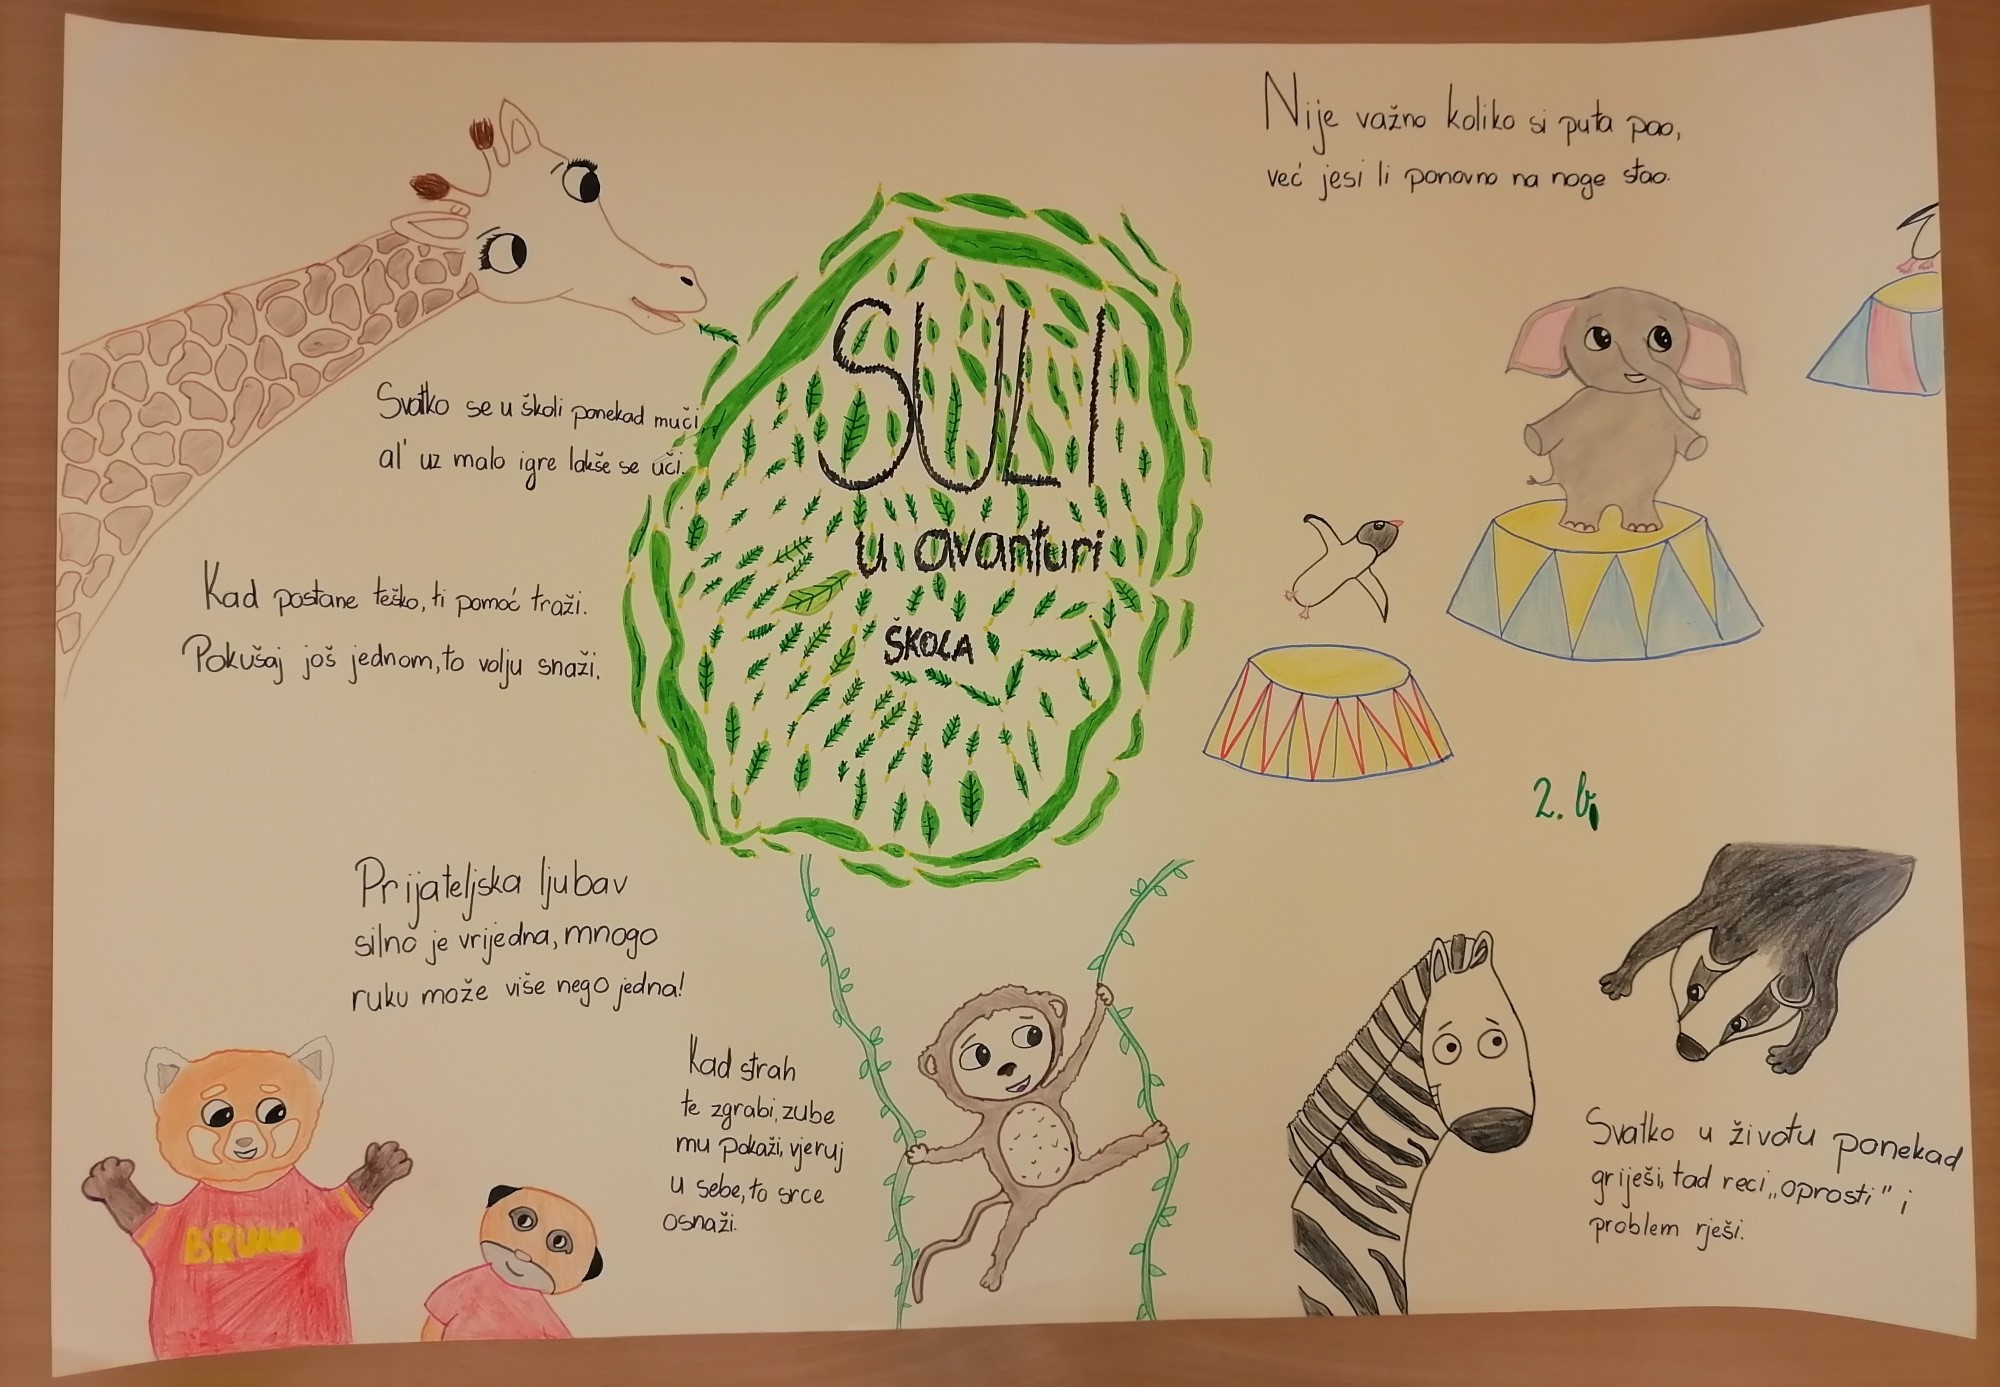 Nije važno koliko si puta pao,
već jesi li ponovno na noge stao.
SULI
u avanturi
ŠKOLA
Svatko se u školi ponekad muči,
al' uz malo igre lakše se uči.
Kad postane teško, ti pomoć traži.
Pokušaj još jednom, to volju snaži.
2. b
Prijateljska ljubav
silno je vrijedna, mnogo
ruku može više nego jedna!
Kad strah
te zgrabi, zube
mu pokaži, vjeruj
u sebe, to srce
osnaži.
Svatko u životu ponekad
griješi, tad reci „oprosti" i
problem rješi.
BRUNO